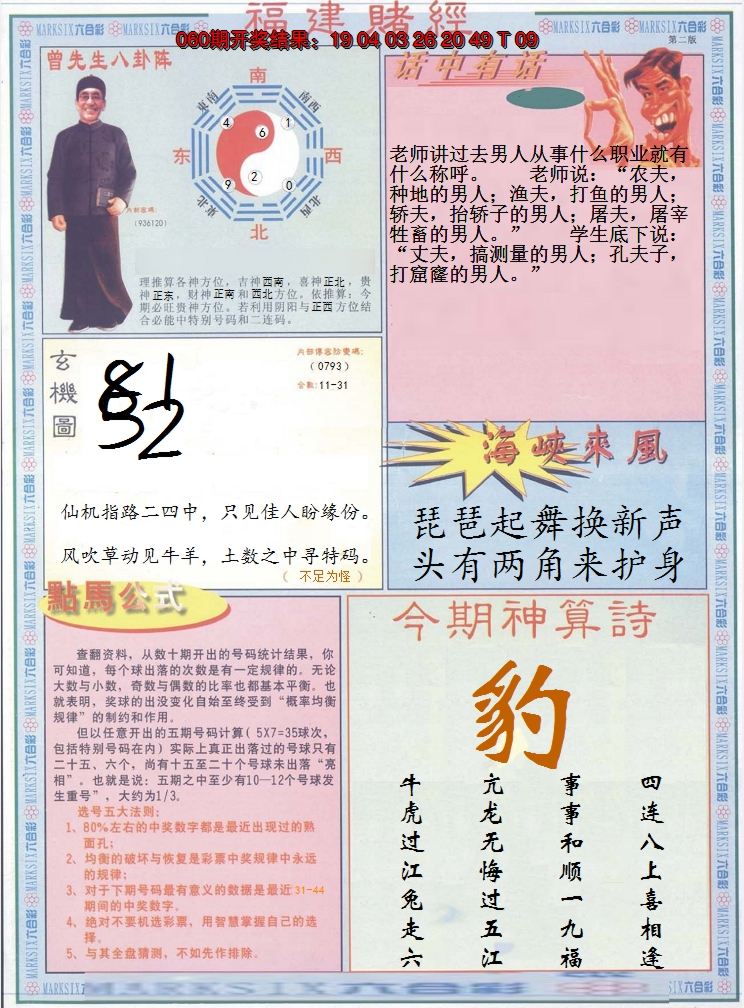 福建賭經
060期开奖结果：19 04 03 26 20 49 T 09
MARKSIX六合彩 MARKSIX六合彩 MARKSIX六合彩 MARKSIX六合彩
第二版
曾先生八卦阵
南
东南
南西
4
1
6
东
西
2
9
0
東北
北西
北
内部密碼：
（936120）
理推算各神方位，吉神西南，喜神正北，贵
神正东，财神正南和西北方位。依推算：今
期必旺贵神方位。若利用阴阳与正西方位结
合必能中特别号码和二连码。
话中有话
老师讲过去男人从事什么职业就有
什么称呼。 老师说：“农夫，
种地的男人；渔夫，打鱼的男人；
轿夫，抬轿子的男人；屠夫，屠宰
牲畜的男人。” 学生底下说：
“丈夫，搞测量的男人；孔夫子，
打窟窿的男人。”
玄機圖
内部傳密抄雙碼：
（0793）
合数:11-31
仙机指路二四中，只见佳人盼缘份。
风吹草动见牛羊，土数之中寻特码。
（ 不足为怪 ）
海峽來風
琵琶起舞换新声
头有两角来护身
點馬公式
查翻资料，从数十期开出的号码统计结果，你
可知道，每个球出落的次数是有一定规律的。无论
大数与小数，奇数与偶数的比率也都基本平衡。也
就表明，奖球的出没变化自始至终受到“概率均衡
规律”的制约和作用。
但以任意开出的五期号码计算( 5X7=35球次，
包括特别号码在内) 实际上真正出落过的号球只有
二十五、六个，尚有十五至二十个号球未出落“亮
相”。也就是说：五期之中至少有10—12个号球发
生重号”，大约为1/3。
选号五大法则：
1、80%左右的中奖数字都是最近出现过的熟
面孔；
2、均衡的破坏与恢复是彩票中奖规律中永远
的规律；
3、对于下期号码最有意义的数据是最近31-44
期间的中奖数字。
4、绝对不要机选彩票，用智慧掌握自己的选
择。
5、与其全盘猜测，不如先作排除。
今期神算詩
豹
牛虎过江兔走六
亢龙无悔过五江
事事和顺一九福
四连八上喜相逢